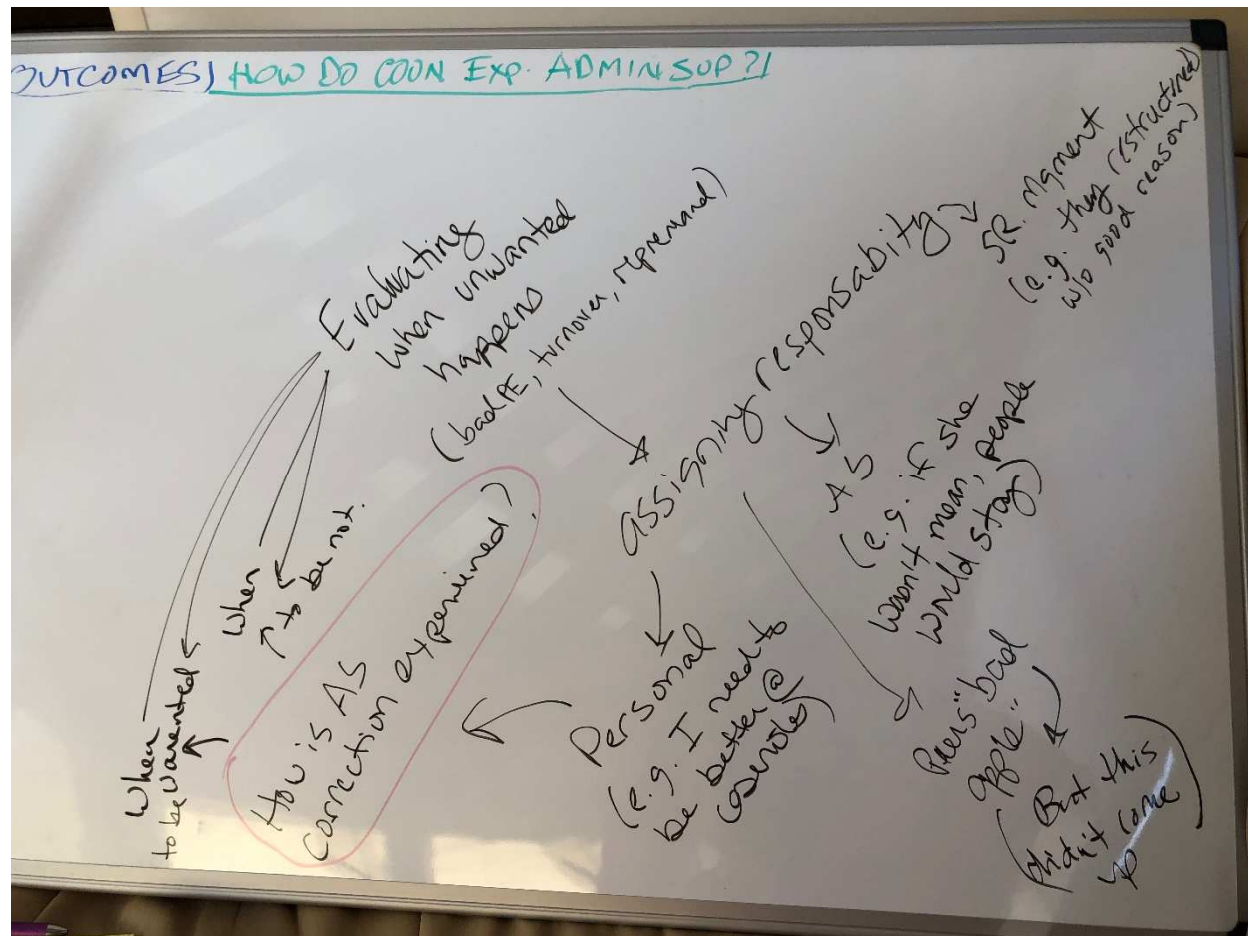 OUTCOMES) HOW DO COON EXP. ADMIN SUP?!
Evaluating
when unwanted
happens
(bad PE, turnover, repremand)
When
to be warented
when
to be not.
How is AS
correction experined?
assigning responsability
SR. Mgment
(e.g. they restructured
w/o good reason)
AS
(e.g. if she
wasn't mean, people
would stay)
Peers "bad
apple"
(But this
didn't come
up)
Personal
(e.g. I need to
be better @
casenotes)